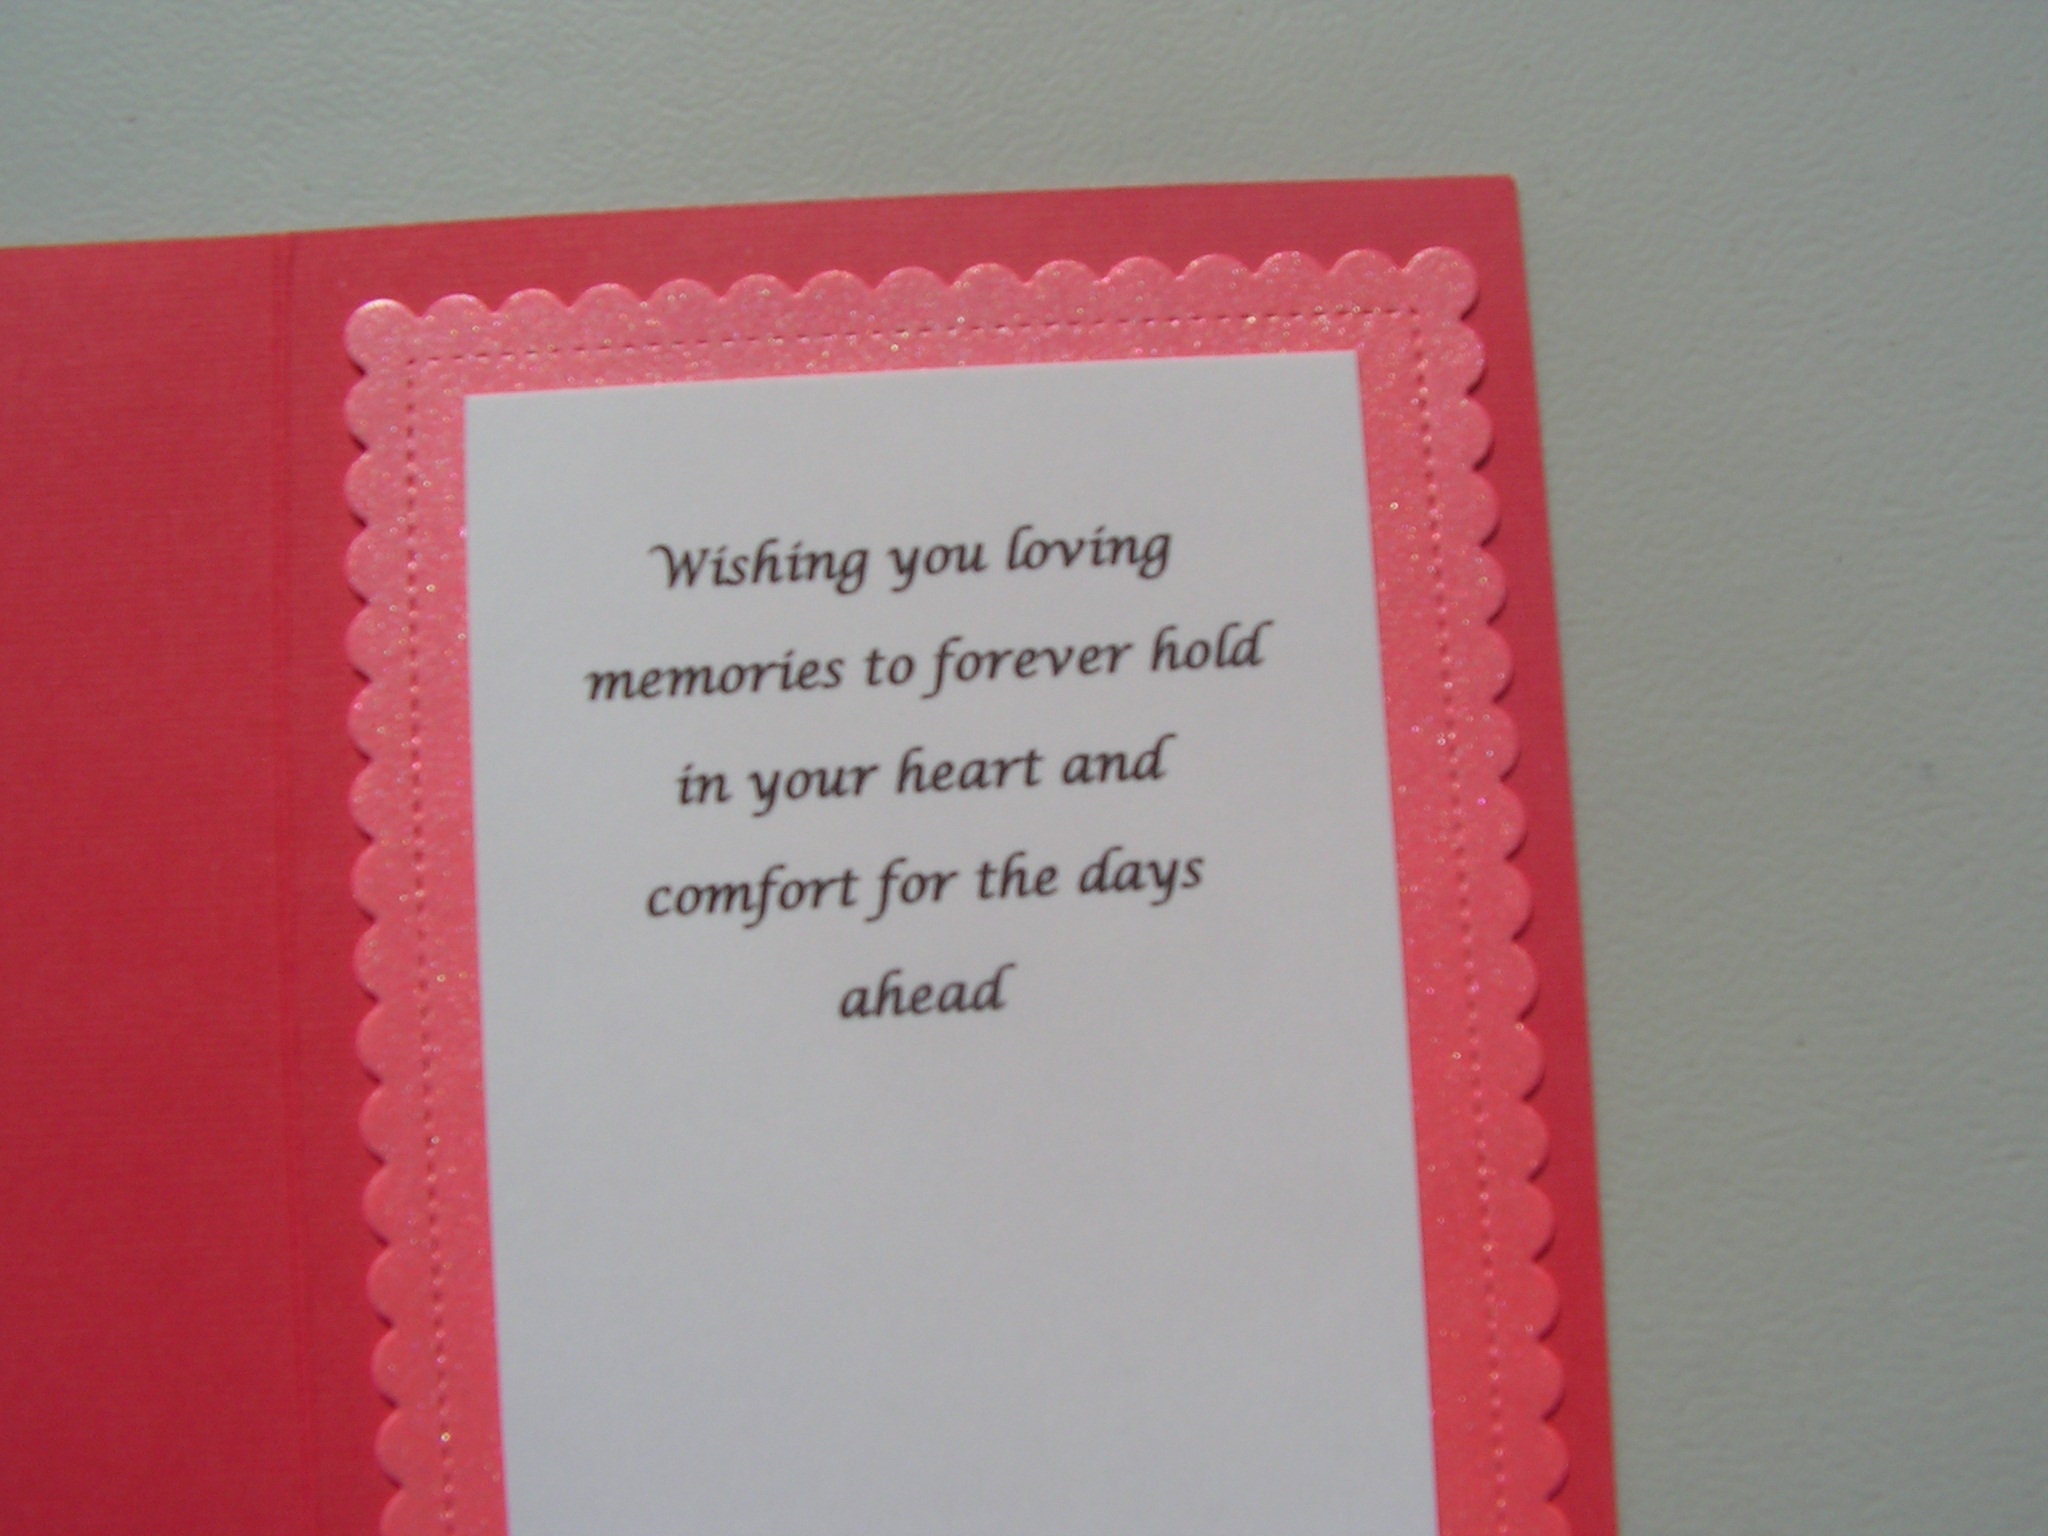 Wishing you loving
memories to forever hold
in your heart and
comfort for the days
ahead